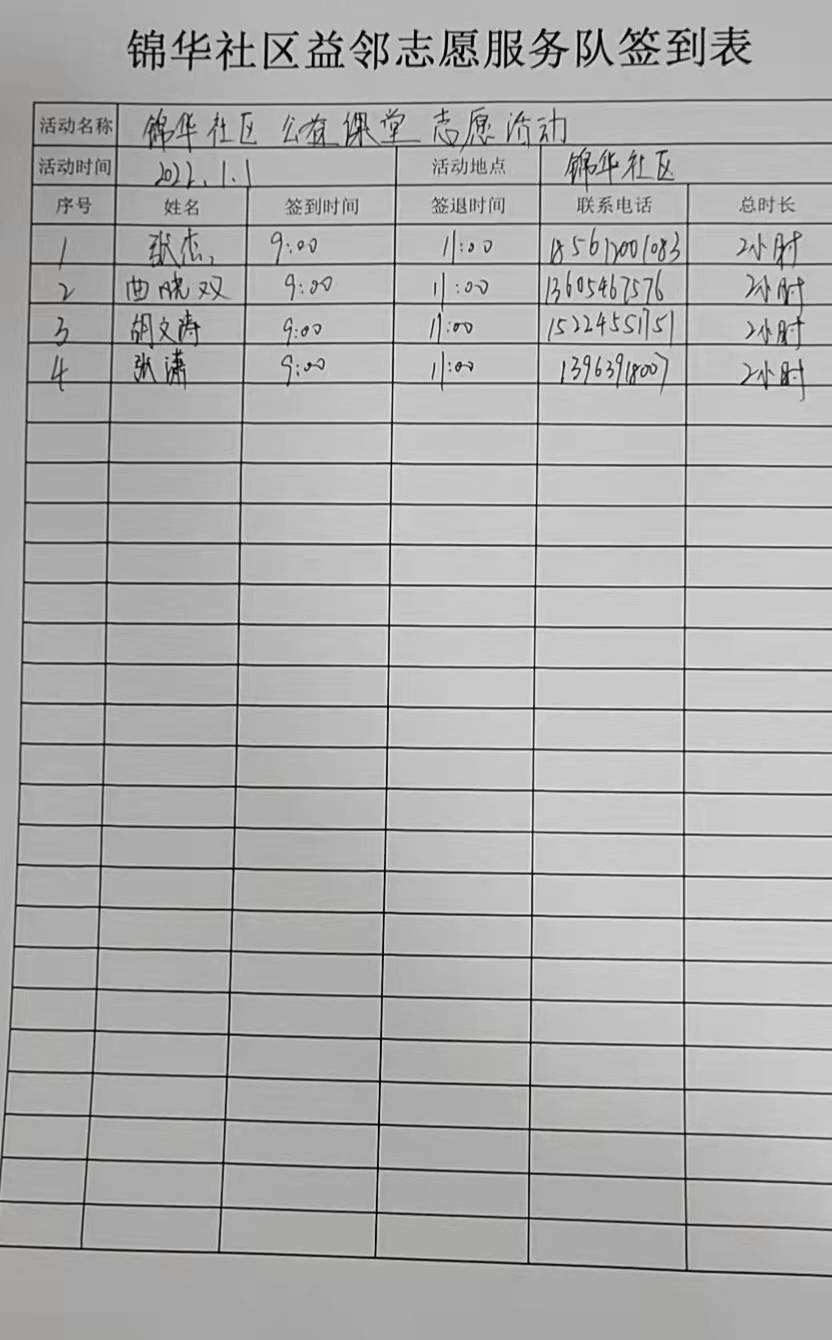 锦华社区益邻志愿服务队签到表
活动名称 锦华社区 公益课堂 志愿活动
活动时间 2022.1.1 活动地点 锦华社区
序号 姓名 签到时间 签退时间 联系电话 总时长
1 张杰 9:00 11:00 185612001083 2小时
2 曲晓双 9:00 11:00 13605467576 2小时
3 胡文涛 9:00 11:00 15224551751 2小时
4 张潇 9:00 11:00 13963918007 2小时